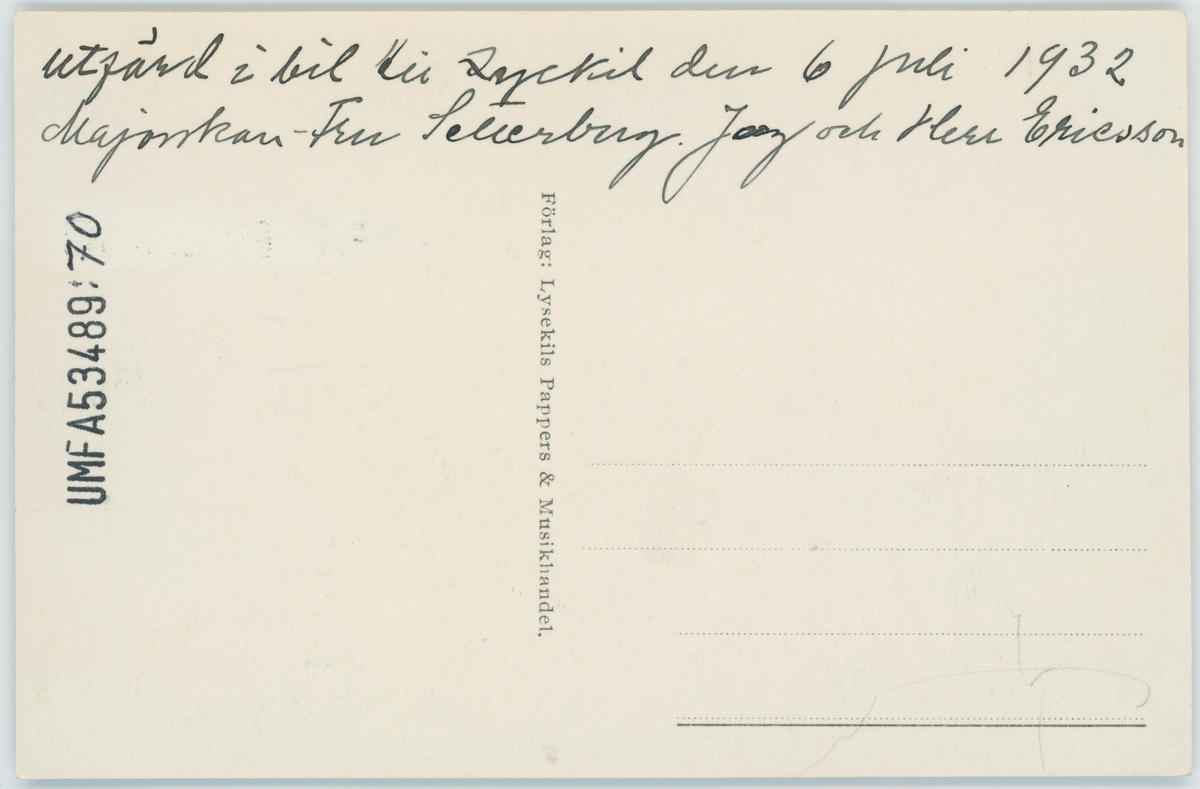 utfärd i bil till Lyckil den 6 juli 1932
Majorskan-Fru Jag och Herr Ericsson
UMFA53489:70
Förlag: Lysekils Pappers & Musikhandel.